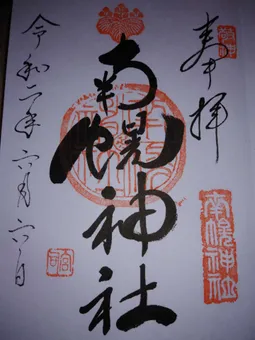 奉拝
南幌神社
南幌神社
令和二年六月六日
宮司